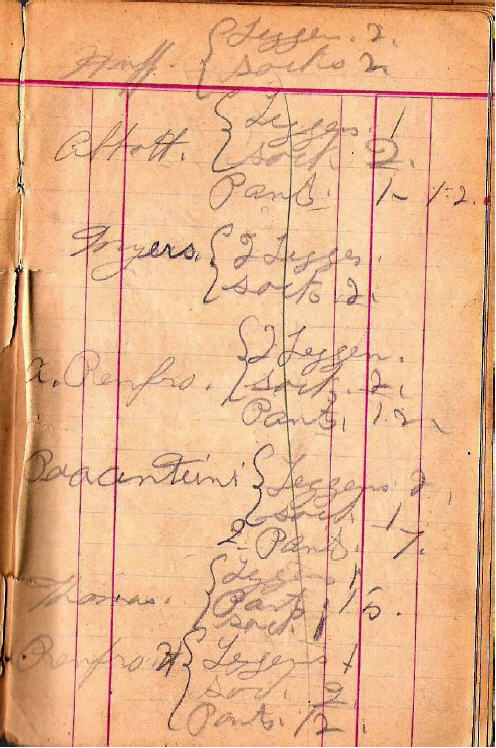 Huff. { Leggen. 2.
socks 2.
Abbott. { Leggens. 1
sock. 2.
Pants. 1- 1-2.
Myers. { 2 Leggen.
socks 2.
A. Renfro. { 2 Leggen.
sock. 2.
Pants. 12.
{ Leggens 2.
sock 1
2 Pants. 7.
Thomas. { Leggens 1
Pants 15.
sock 1
Renfro. H { Leggens 1
soc. 2.
Pants. 12.